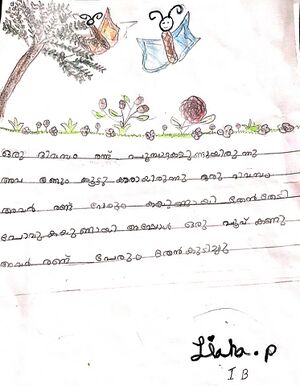 ഒരു ദിവസം രണ്ട് പൂമ്പാറ്റകളുണ്ടായിരുന്നു
അവ രണ്ടും കൂട്ടുകാരായിരുന്നു ഒരു ദിവസം
അവർ രണ്ട് പേരും തേൻതേടി
പോവുകയുണ്ടായി അപ്പോൾ ഒരു പൂവ് കണ്ടു
അവർ രണ്ട് പേരും തേൻകുടിച്ചു
P
I B